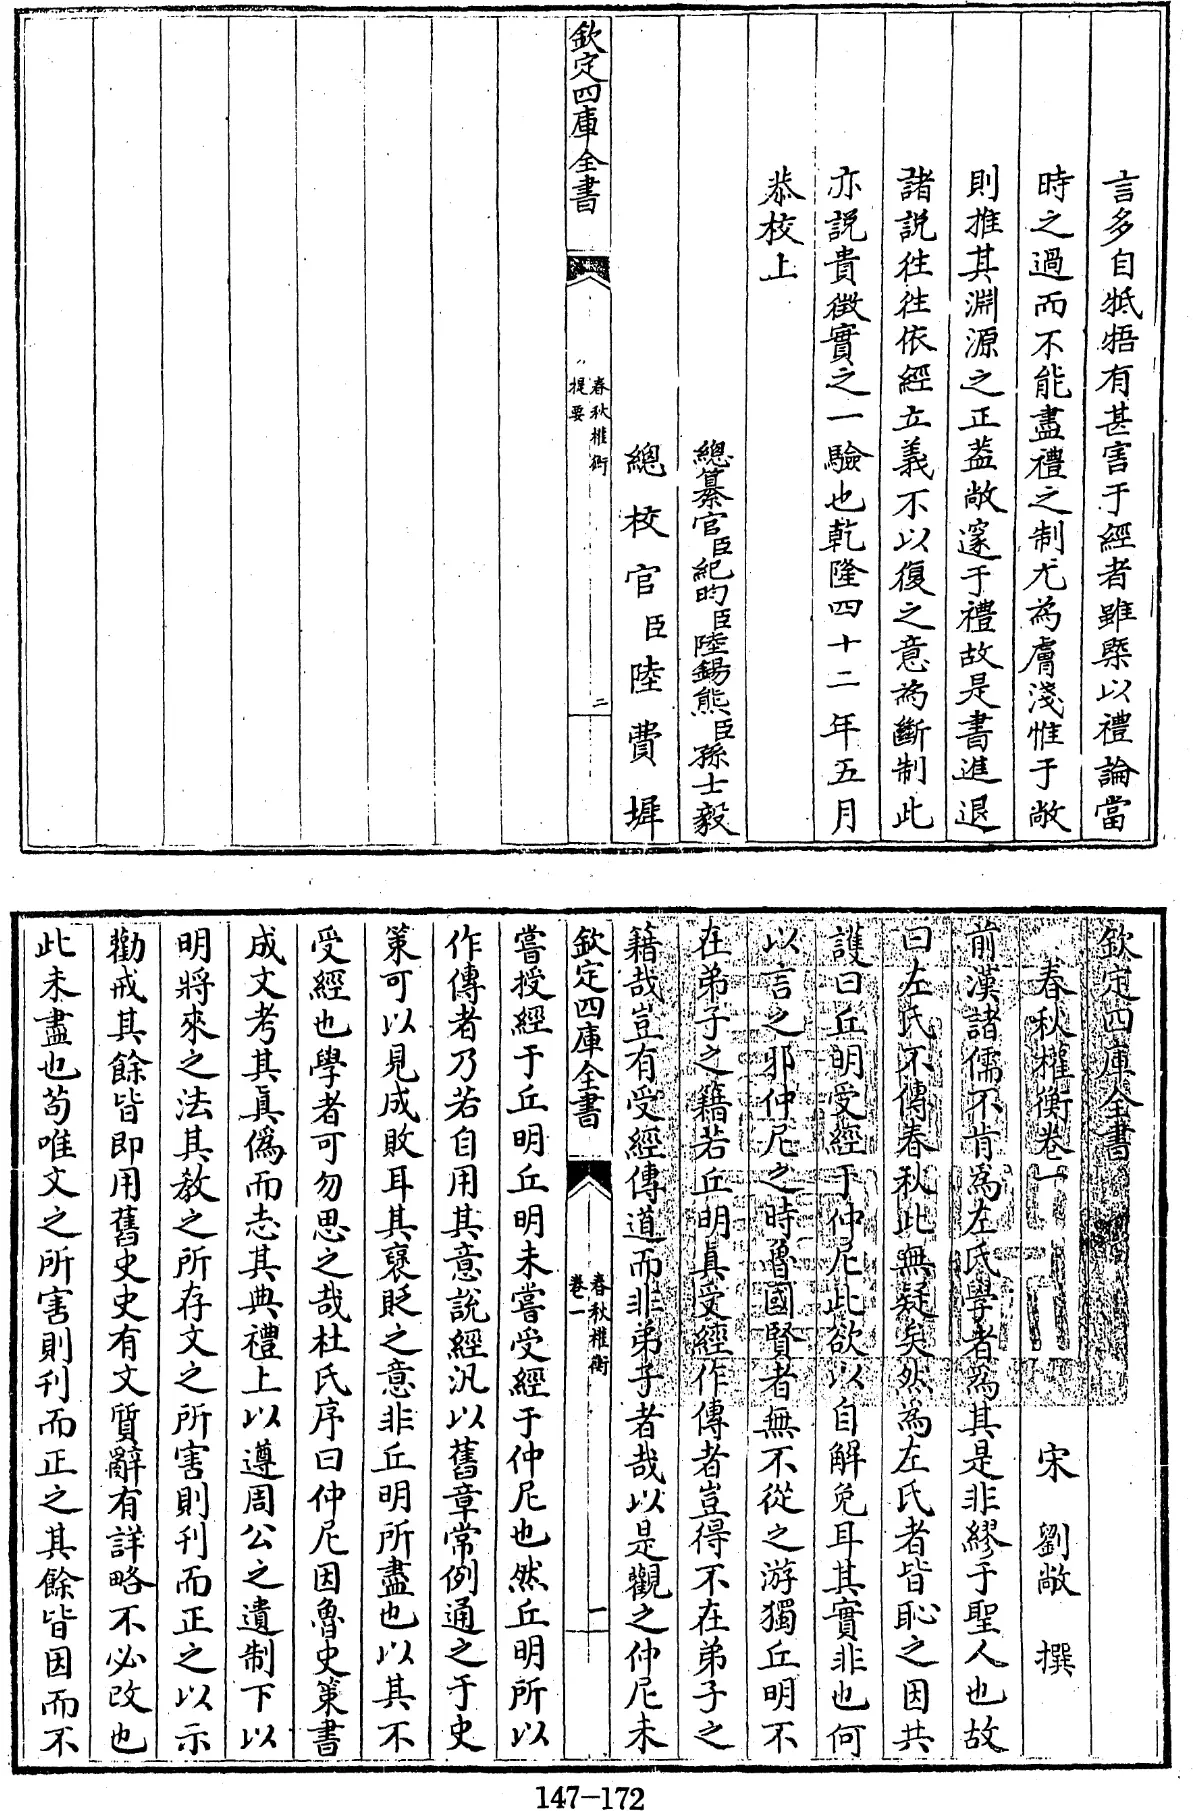 言多自牴牾有甚害于經者雖槩以禮論當
時之過而不能盡禮之制尤為膚淺惟于敞
則推其淵源之正葢敞邃于禮故是書進退
諸説徃徃依經立義不以復之意為斷制此
亦説貴徵實之一驗也乾隆四十二年五月
恭校上
總纂官臣紀昀臣陸錫熊臣孫士毅
總校官臣陸費墀
欽定四庫全書
春秋權衡
提要
二
欽定四庫全書
春秋權衡卷一
宋 劉敞 撰
前漢諸儒不肯為左氏學者為其是非繆于聖人也故
曰左氏不傳春秋此無疑矣然為左氏者皆恥之因共
護曰丘明受經于仲尼此欲以自解免耳其實非也何
以言之邪仲尼之時魯國賢者無不從之游獨丘明不
在弟子之籍若丘明真受經作傳者豈得不在弟子之
籍哉豈有受經傳道而非弟子者哉以是觀之仲尼未
欽定四庫全書
春秋權衡
卷一
一
嘗授經于丘明丘明未嘗受經于仲尼也然丘明所以
作傳者乃若自用其意說經汎以舊章常例通之于史
策可以見成敗耳其襃貶之意非丘明所盡也以其不
受經也學者可勿思之哉杜氏序曰仲尼因魯史策書
成文考其真偽而志其典禮上以遵周公之遺制下以
明將來之法其敎之所存文之所害則刋而正之以示
勸戒其餘皆即用舊史史有文質辭有詳略不必改也
此未盡也苟唯文之所害則刋而正之其餘皆因而不
147-172